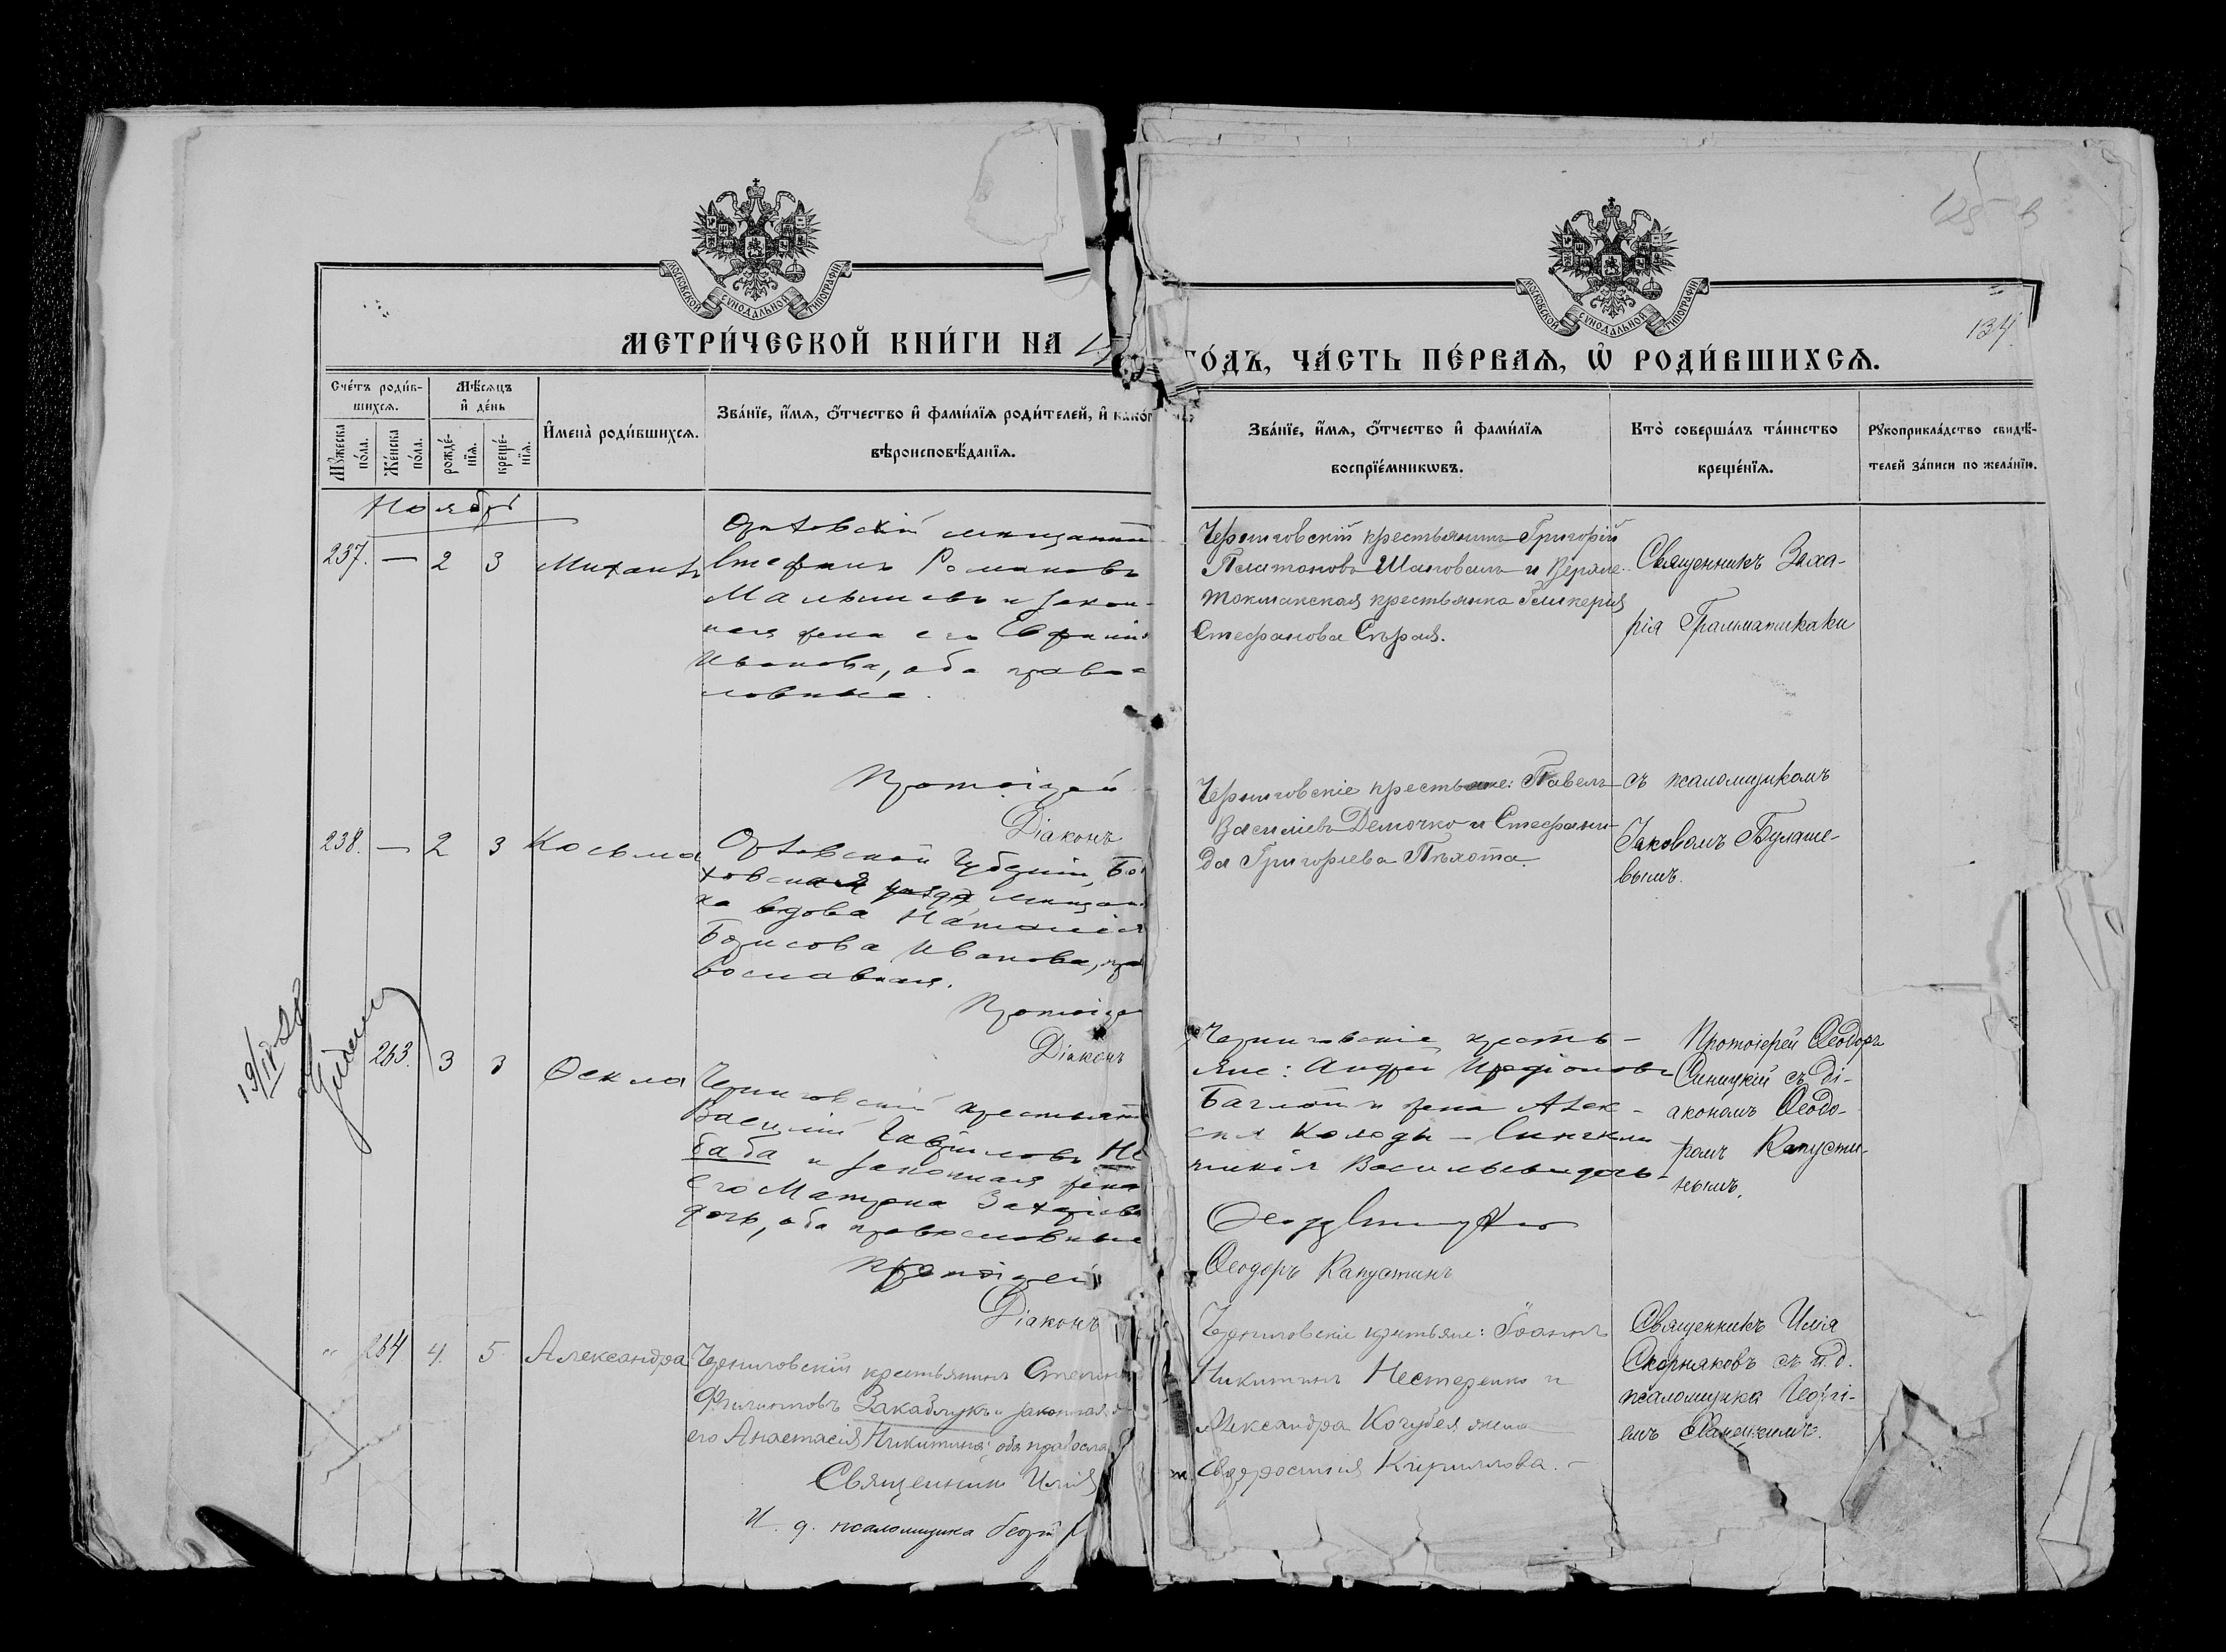 125
134
МОСКОВСКОЙ СУНОДАЛЬНОЙ ТИПОГРАФІИ
МОСКОВСКОЙ СУНОДАЛЬНОЙ ТИПОГРАФІИ
МЕТРИ́ЧЕСКОЙ КНИ́ГИ НА
ГО́ДЪ, ЧА́СТЬ ПЕ́РВАѦ, Ѽ РОДИ́ВШИХСѦ.
Сче́тъ роди́в-
шихсѧ.
Мѣ́сѧцъ
и҆ де́нь
Му́жеска
по́ла.
Же́нска
по́ла.
рожде́-
нїѧ.
креще́-
нїѧ.
И҆мена̀ роди́вшихсѧ.
Зва́нїе, и҆́мѧ, ѻ҆́тчество и҆ фами́лїѧ роди́телей, и҆ како́г
вѣроисповѣ́данїѧ.
Зва́нїе, и҆́мѧ, ѻ҆́тчество и҆ фами́лїѧ
воспрїе́мникѡвъ.
Кто̀ соверша́лъ та́инство
креще́нїѧ.
Рꙋкоприкла́дство свидѣ́-
телей за́писи по жела́нїю.
Ноябрь
237. — 2 3 Михаилъ
Орловскій мещанинъ
Стефанъ Романовъ
Малышевъ и закон-
ная жена его
Иванова, оба право
славные.
Протоіерей
Діаконъ
Черниговскій крестьянинъ Григорій
Платоновъ Шаповалъ и Верхне-
токмакская крестьянка Гликерія
Стефанова Сѣрая.
Священникъ Заха-
рія Грамматикаки
238. — 2 3 Козьма
Орловской Губерніи, Бол
ховской уѣзда мещан
ка вдова Наталія
Борисова Иванова, пра
вославная.
Протоіер
Діаконъ
Черниговскіе крестьяне: Павелъ
Василіевъ Демочко и Стефани-
да Григоріева Пѣхота.
съ псаломщикомъ
Іаковомъ Булаше-
вымъ.
19/IV
263. 3 3 Ѳекла
Черниговскій крестьянинъ
Василій Гавріиловъ Не
баба и законная жена
его Матрона Захаріева
дочь, оба православные
Протоіерей
Діаконъ
Черниговскіе кресть-
яне: Андрей Иродіоновъ
Баглай и жена Алек-
сія Колоды — Синкли
тикія Васильева дочь
Ѳеодоръ Капустинъ
Протоіерей Ѳеодоръ
Синицкій съ ді-
акономъ Ѳеодо-
ромъ Капусти-
нымъ.
" 264 4. 5 Александра
Черниговскій крестьянинъ Стефанъ
Филипповъ Закаблукъ и законная ж
его Анастасія Никитина; оба правосла
Священникъ Илія
И. д. псаломщика Георгій
Черниговскіе крестьяне: Іоаннъ
Никитинъ Нестеренко и
Александра Кочубея жена
Евфросинія Кириллова. -
Священникъ Илія
Скорняковъ съ и. д.
псаломщика Георгі-
емъ